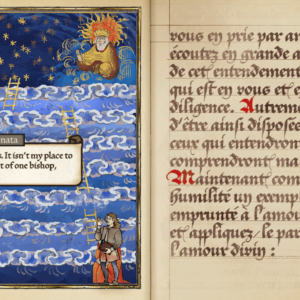 nata
. It isn't my place to
t of one bishop,
vous en prie par am
écoutez en grande a
de cet entendement
qui est en vous et e
diligence. Autrem
d'être ainsi disposée
ceux qui entendront
comprendront ma
Maintenant com
humilité un exemp
emprunté à l'amour
et appliquez le par
l'amour divin :